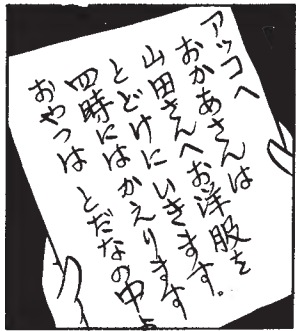 アッコへ
おかあさんは
山田さんへお洋服を
とどけにいきます。
四時にはかえります
おやつは とだなの中よ